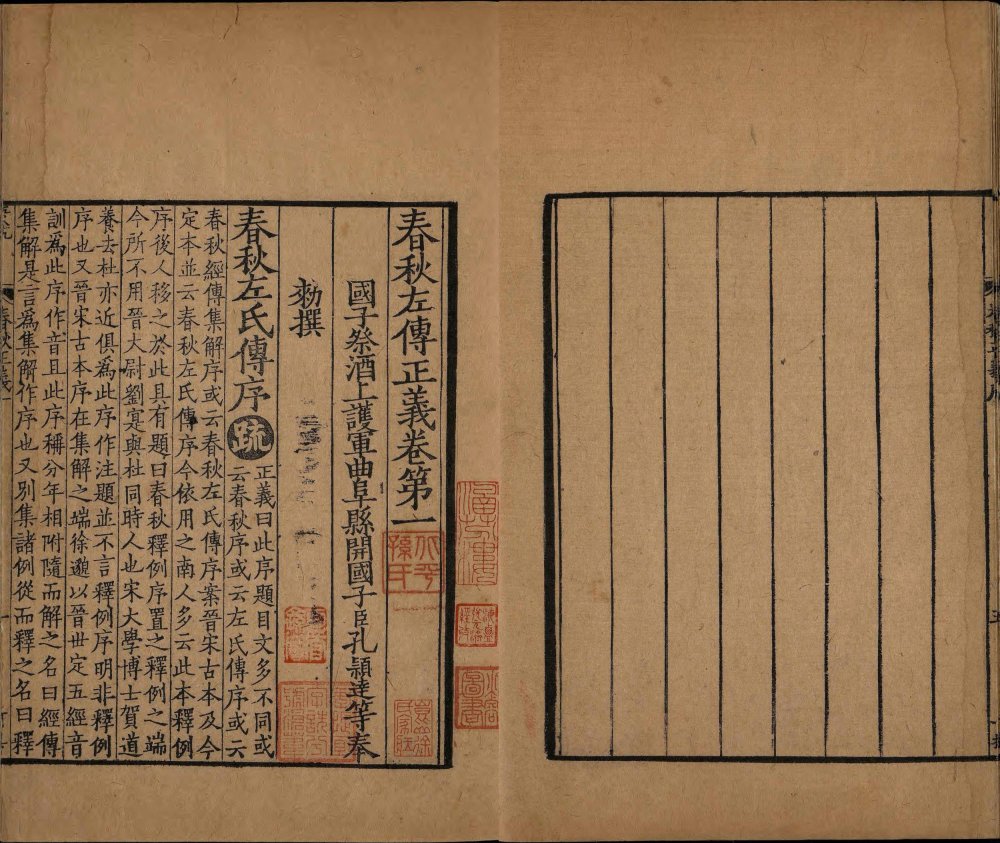 春秋左傳正義卷第一
國子祭酒上護軍曲阜縣開國子臣孔穎達等奉
勑撰
春秋左氏傳序
疏
正義曰此序題目文多不同或
云春秋序或云左氏傳序或云
春秋經傳集解序或云春秋左氏傳序案晉宋古本及今
定本並云春秋左氏傳序今依用之南人多云此本釋例
序後人移之於此且有題曰春秋釋例序置之釋例之端
今所不用晉大尉劉寔與杜同時人也宋大學博士賀道
養去杜亦近俱爲此序作注題並不言釋例序明非釋例
序也又晉宋古本序在集解之端徐邈以晉世定五經音
訓爲此序作音且此序稱分年相附隨而解之名曰經傳
集解是言爲集解作序也又別集諸例從而釋之名曰釋
春秋正義一
北平
孫氏
圖書